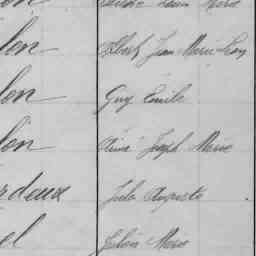 lon Albert, Jean Marie Léon
lon Guy Emile
lon Aimé Joseph Marie
rdeaux Jules Auguste
el Marie